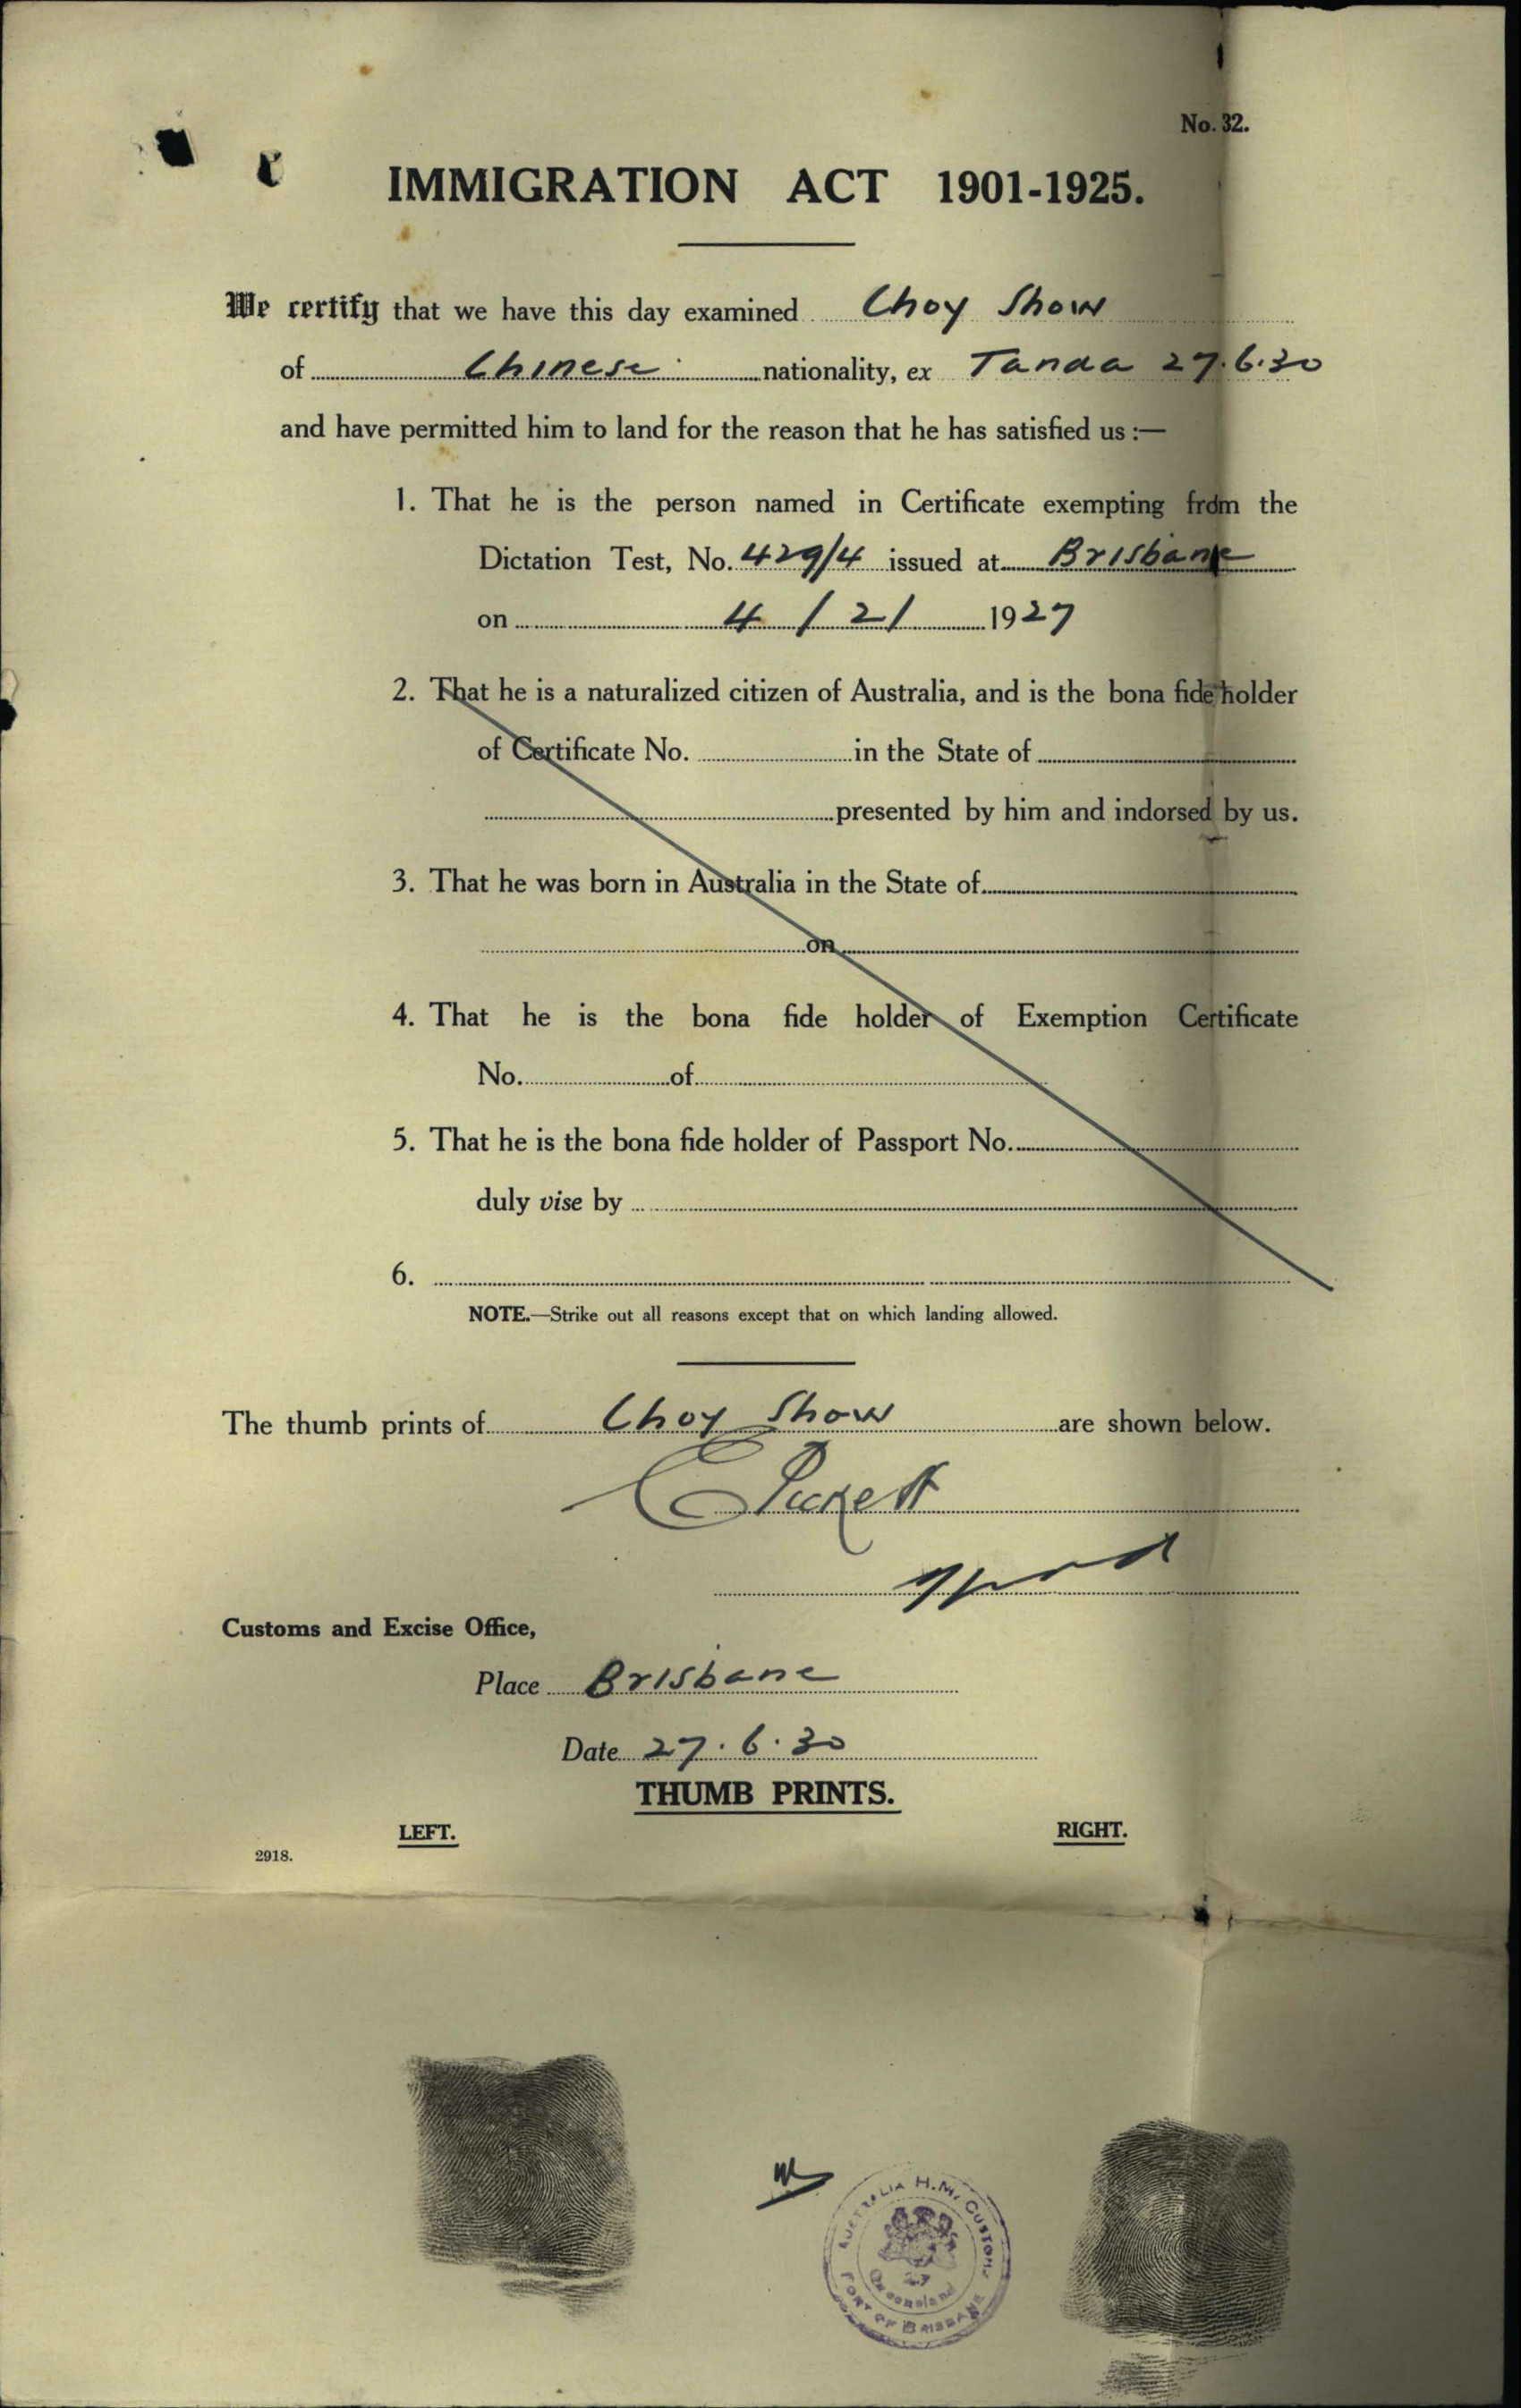 No. 32.
IMMIGRATION ACT 1901-1925.
We certify that we have this day examined Choy Show
of Chinese nationality, ex Tanda 27.6.30
and have permitted him to land for the reason that he has satisfied us :—
1. That he is the person named in Certificate exempting from the
Dictation Test, No. 429/4 issued at Brisbane
on 4 / 2 / 1927
2. That he is a naturalized citizen of Australia, and is the bona fide holder
of Certificate No. in the State of
presented by him and indorsed by us.
3. That he was born in Australia in the State of
on
4. That he is the bona fide holder of Exemption Certificate
No. of
5. That he is the bona fide holder of Passport No.
duly vise by
6.
NOTE.—Strike out all reasons except that on which landing allowed.
The thumb prints of Choy Show are shown below.
Customs and Excise Office,
Place Brisbane
Date 27.6.30
THUMB PRINTS.
LEFT. RIGHT.
2918.
AUSTRALIA H.M. CUSTOMS
Queensland
PORT OF BRISBANE